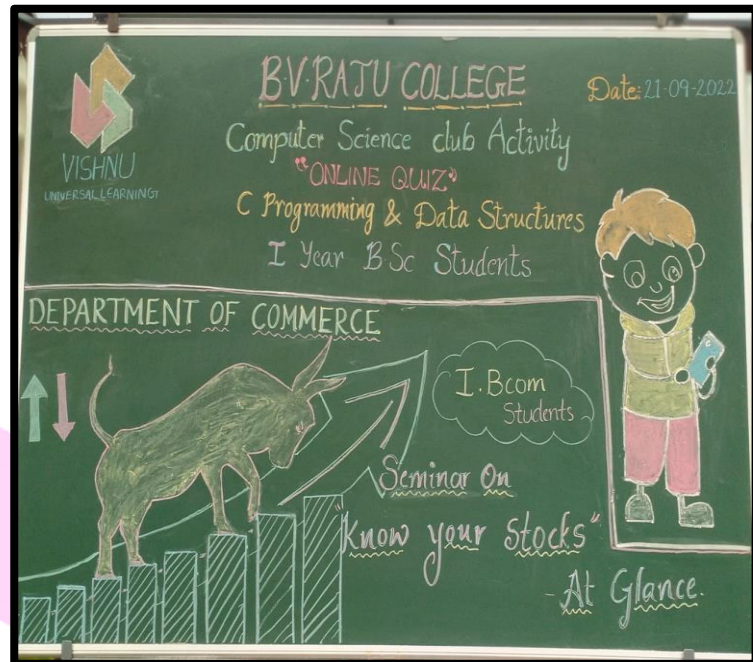 VISHNU
UNIVERSAL LEARNING
B.V.RAJU COLLEGE
Date: 21-09-2022
Computer Science club Activity
"ONLINE QUIZ"
C Programming & Data Structures
I Year B.Sc Students
DEPARTMENT OF COMMERCE
I. Bcom
Students
Seminar On
"Know your Stocks"
- At Glance.